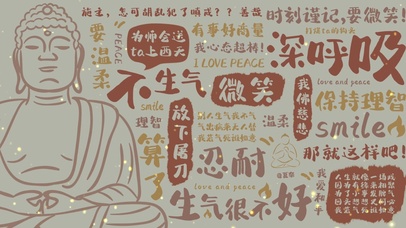 施主，怎可胡乱犯了嗔戒？？善哉
时刻谨记，要微笑！
要温柔
PEACE
为师会送
ta上西天
有事好商量
我心态超棒！
I LOVE PEACE
打扰ta的狗命
深呼吸
love and peace
不生气
微笑
我佛慈悲
保持理智
smile
smile
理智
放下屠刀
别人生气我不气
气出病来无人替
温柔
那就这样吧！
算了
忍耐
love and peace
生气很不好
我爱和平
人生就像一场戏
因为有缘才相聚
为了小事发脾气
回头想想又何必